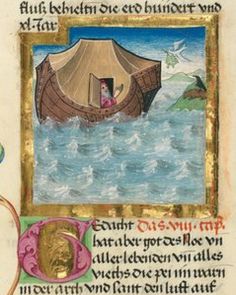 fluß behielten die erd hundert vnd
xl. Tar
Gedacht Das .viii. cap.
hat aber got des Noe vn
aller lebenden vn alles
viechs die pei im warn
in der arch vnd sant den luft auf